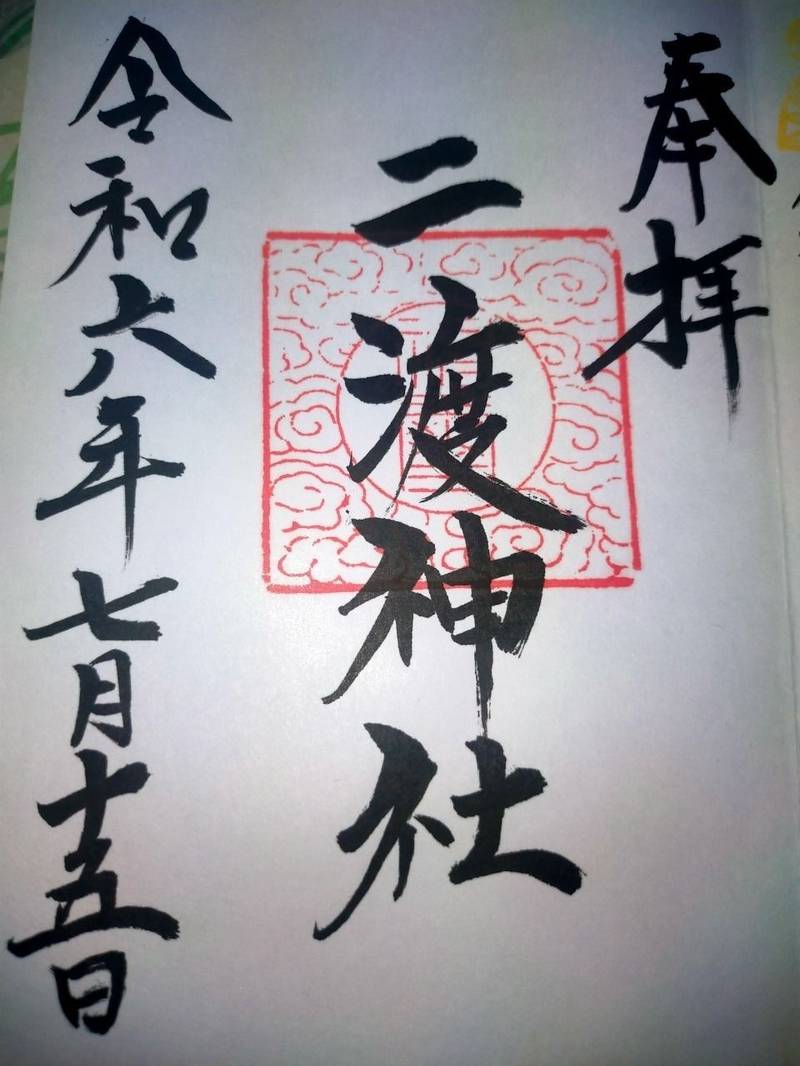 奉拝
二渡神社
令和六年七月十五日